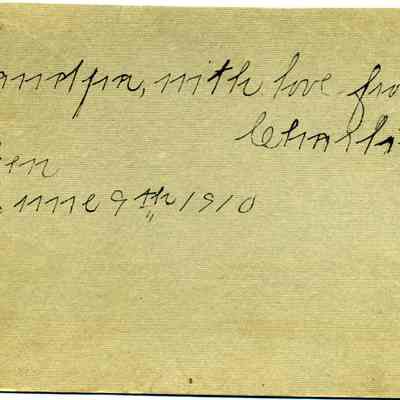 andpa, with love fro
Charli
en
une 9th 1910